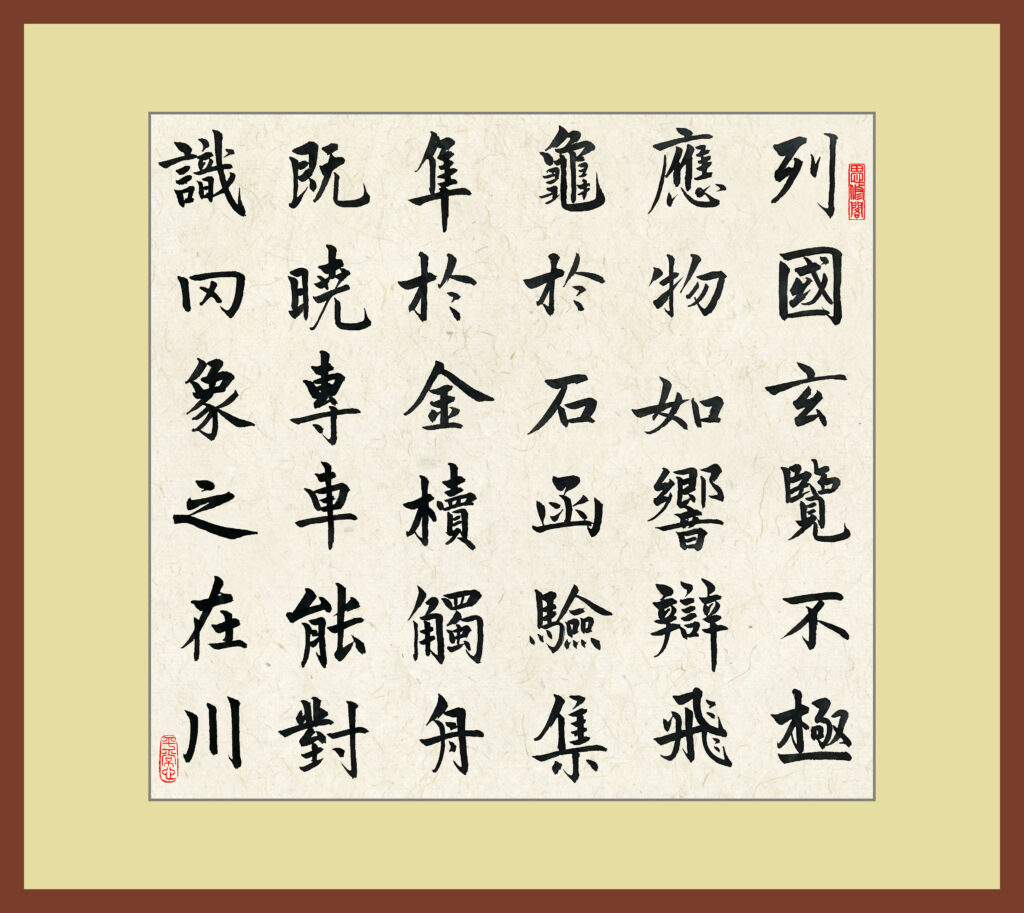 思修閣
列國玄覽不極
應物如響辯飛
龜於石函驗集
隼於金櫝觸舟
既曉專車能對
識冈象之在川
平常心